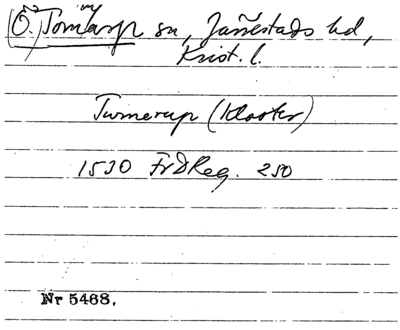 (Ö.) Tomarp sn, Järrestads hd,
Krist. l.
Tumerup (Kloster)
1530 FrdReg. 250
Nr 5468.